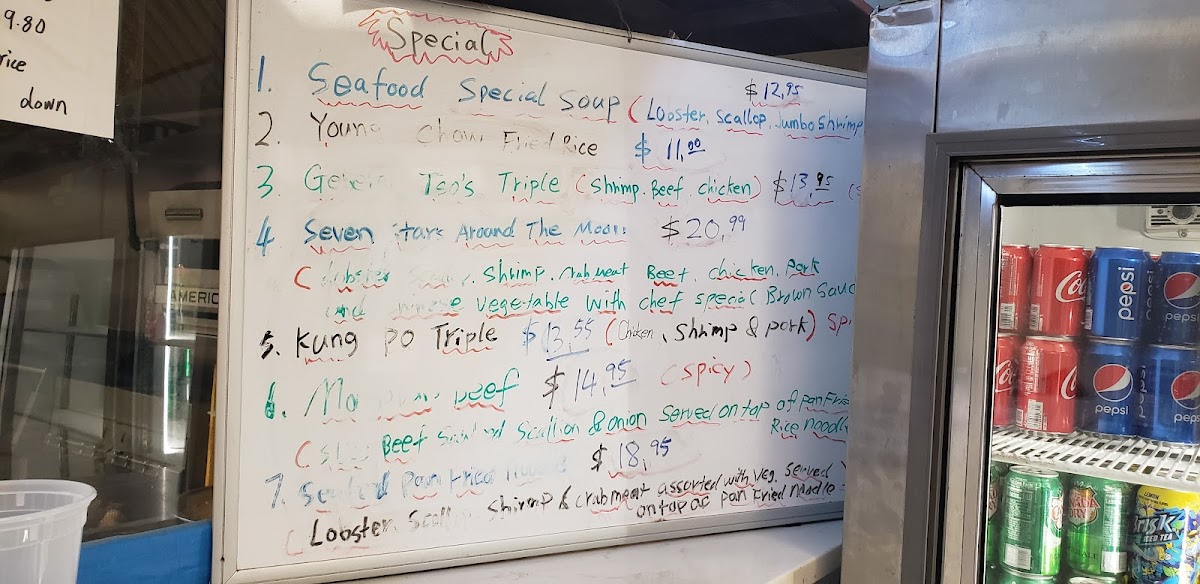 9.80
rice
down
Special
1. Seafood Special Soup $12.95
(Lobster, Scallop, Jumbo Shrimp
2. Young Chow Fried Rice $11.00
3. General Tso's Triple (Shrimp. Beef. chicken) $13.95 (S
4 Seven Stars Around The Moon: $20.99
(Lobster, Shrimp. crab meat Beef. chicken. Pork
and chinese vegetable with chef special Brown Sauc
5. Kung Po Triple $13.55 (Chicken, Shrimp & pork) Spi
6. Mo Beef $14.95 (Spicy)
Beef Scallion & onion Served on top of pan Fried
Rice noodle
7. Seafood Pan Fried noodle $18.95
(Lobster, Scallop Shrimp & crabmeat assorted with Veg. Served
on top of pan Fried noodle
AMERIC
Coca
pepsi
pepsi
Co
pepsi
pepsi
CANADA
DRY
ALE
LEMON
Brisk
ICED TEA